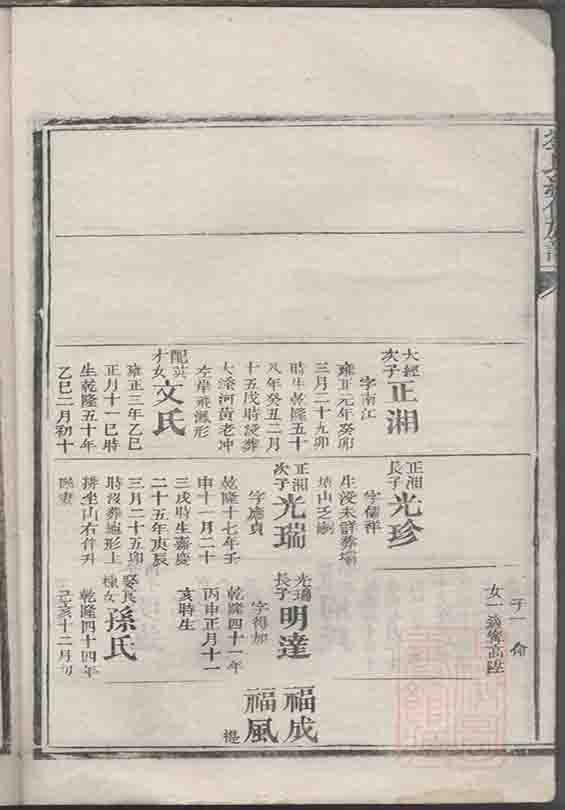 大經
次子
正湘
字南江
雍正元年癸卯
三月二十九卯
時生乾隆五十
八年癸丑二月
十五戌時歿葬
大滦河黃老冲
左岸飛鳳形
配英
才女
文氏
雍正三年乙巳
正月十一巳時
生乾隆五十年
乙巳二月初十
正湘
長子
光珍
字儒祥
生没未詳葬壩
正湘
次子
光瑞
字應貞
乾隆十七年壬
申十一月二十
三戌時生嘉慶
二十五年庚辰
三月二十五卯
時没葬地形上
排坐山右首升
子一 命
女一適甯高陞
光瑞
長子
明達
字得加
乾隆四十一年
丙申正月十一
亥時生
娶長
棟女
孫氏
乾隆四十四年
己亥十二月旬
福成
福風